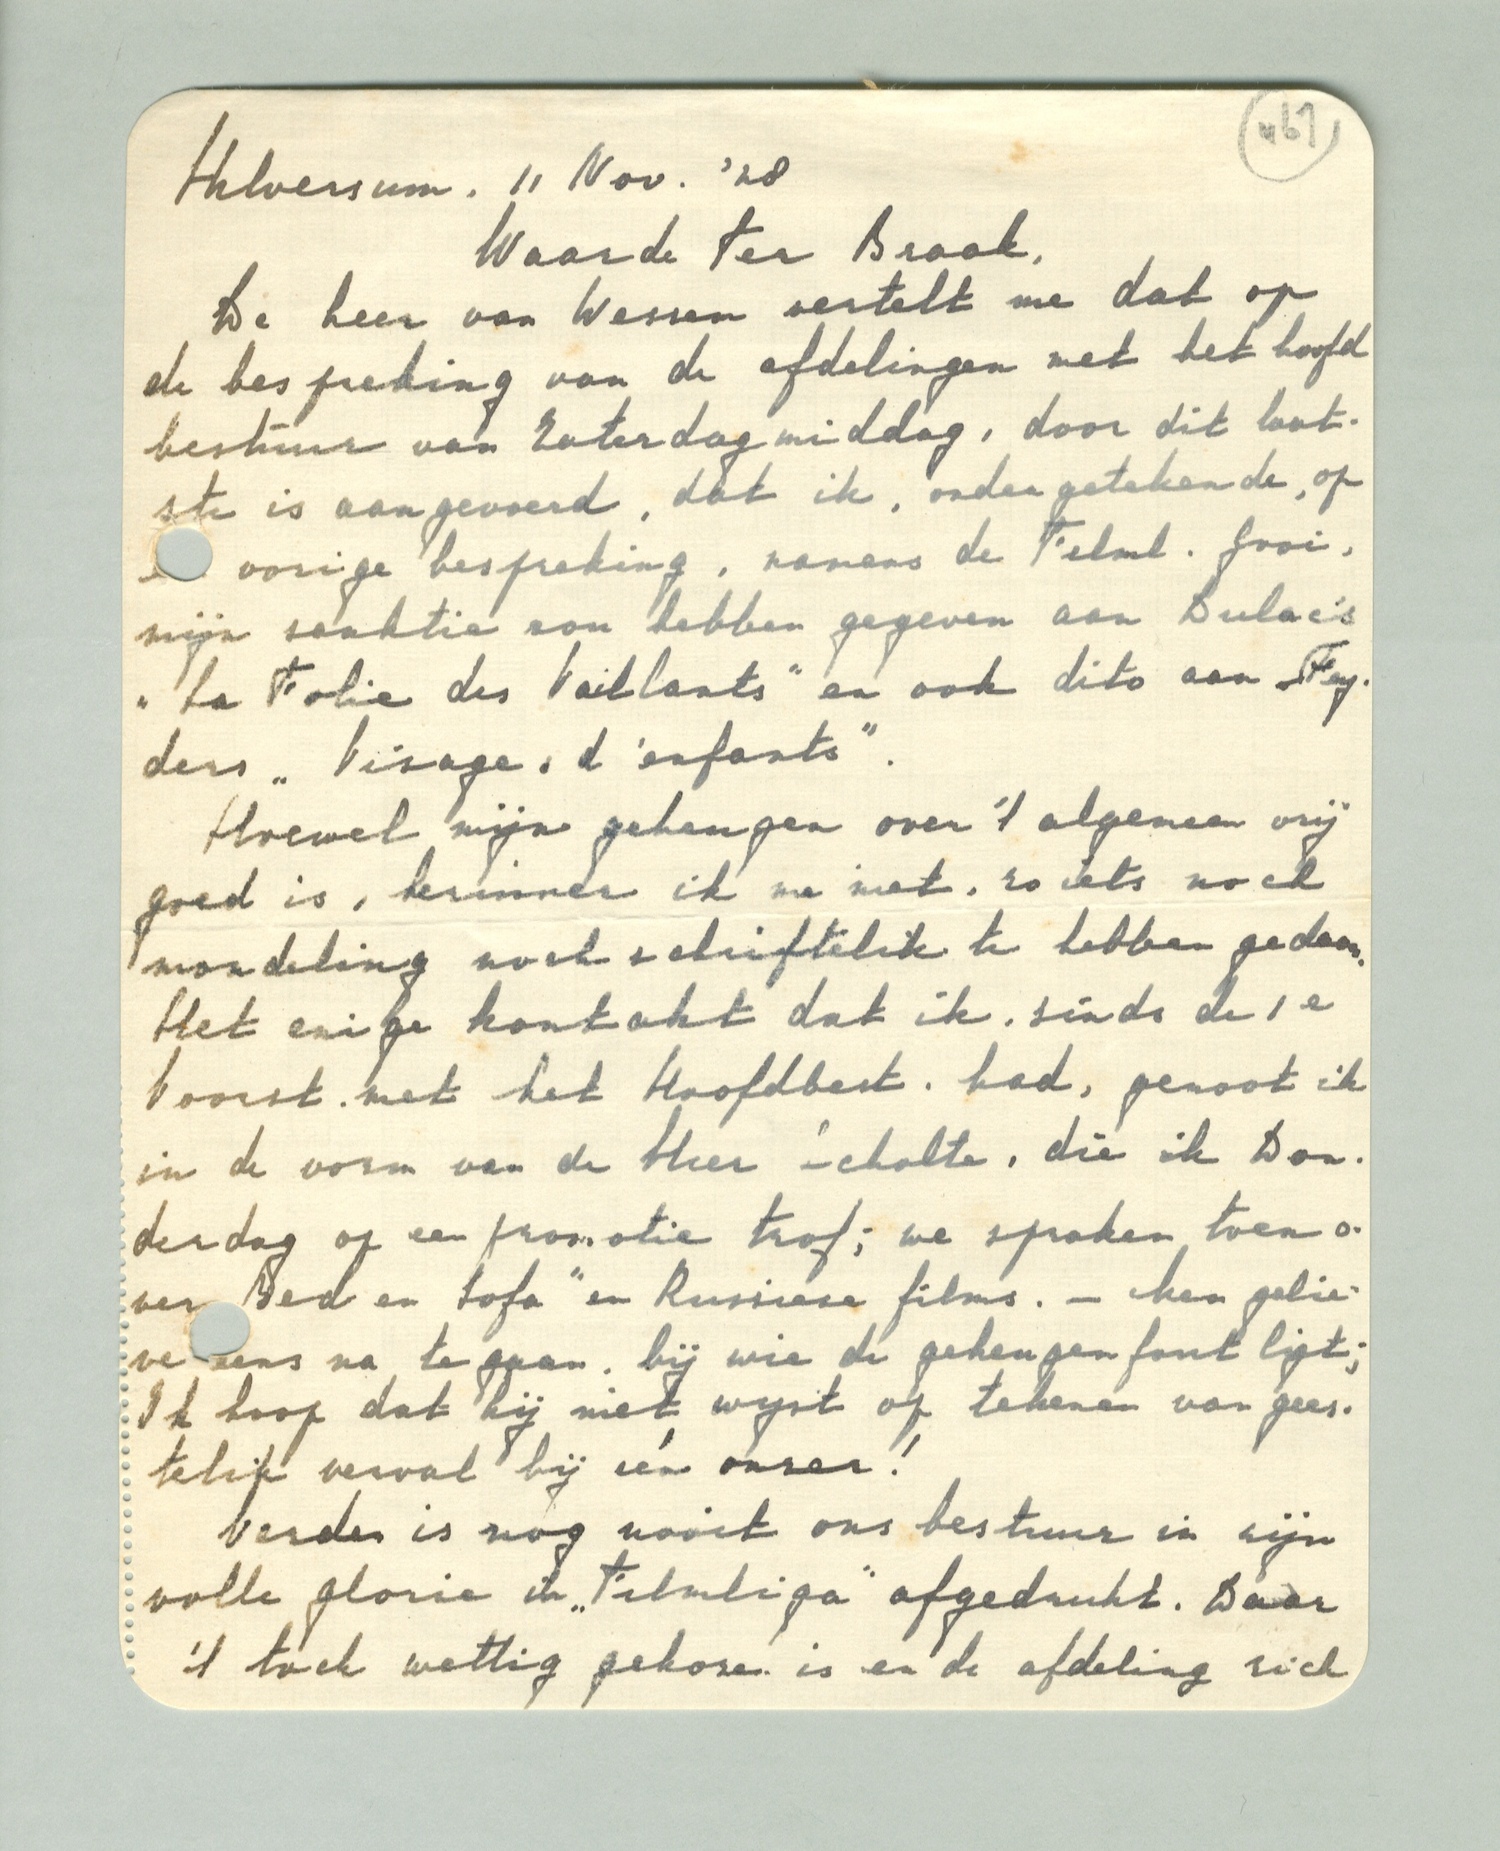 461
Hilversum. 11 Nov. '28
Waarde Ter Braak,
De heer van Wessem vertelt me dat op
de bespreking van de afdelingen met het hoofd
bestuur van Zaterdagmiddag, door dit laat-
ste is aangevoerd, dat ik, ondergetekende, op
vorige bespreking, namens de Filml. Gooi,
mijn sanktie zou hebben gegeven aan Dulac's
"La Folie des Vaillants" en ook dito aan Fey-
ders „Visages d'enfants".
Hoewel mijn geheugen over 't algemeen vrij
goed is, herinner ik me niet, zo iets noch
mondeling noch schriftelik te hebben gedaan.
Het enige kontakt dat ik, sinds de 1e
Voorst. met het Hoofdbest. had, genoot ik
in de vorm van de Heer Scholte, die ik Don-
derdag op een promotie trof; we spraken toen o-
ver Bed en Sofa" en Russiese films. — Men gelie-
ve eens na te gaan, bij wie de geheugenfout ligt;
Ik hoop dat hij niet wijst op tekenen van gees-
telijk verval bij één onzer!
Verder is nog nooit ons bestuur in zijn
volle glorie in „Filmliga" afgedrukt. Daar
't toch wettig gekozen is en de afdeling zich